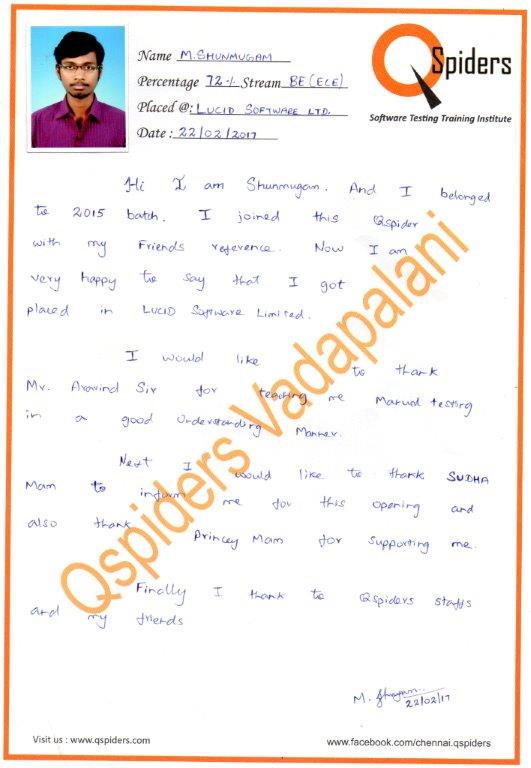 Name M.SHUNMUGAM
Percentage 72% Stream BE (ECE)
Placed @: LUCID SOFTWARE LTD.
Date : 22/02/2017
QSpiders
Software Testing Training Institute
Hi I am Shunmugam. And I belonged
to 2015 batch. I joined this Qspider
with my Friends reference. Now I am
very happy to say that I got
placed in LUCID Software Limited.
I would like to thank
Mr. Aravind Sir for teaching me Manual testing
in a good Understanding Manner.
Next I would like to thank SUDHA
Mam to inform me for this opening and
also thank Princey Mam for supporting me.
Finally I thank to Qspiders staffs
and my friends
Qspiders Vadapalani
M.
22/02/17
Visit us : www.qspiders.com
www.facebook.com/chennai.qspiders